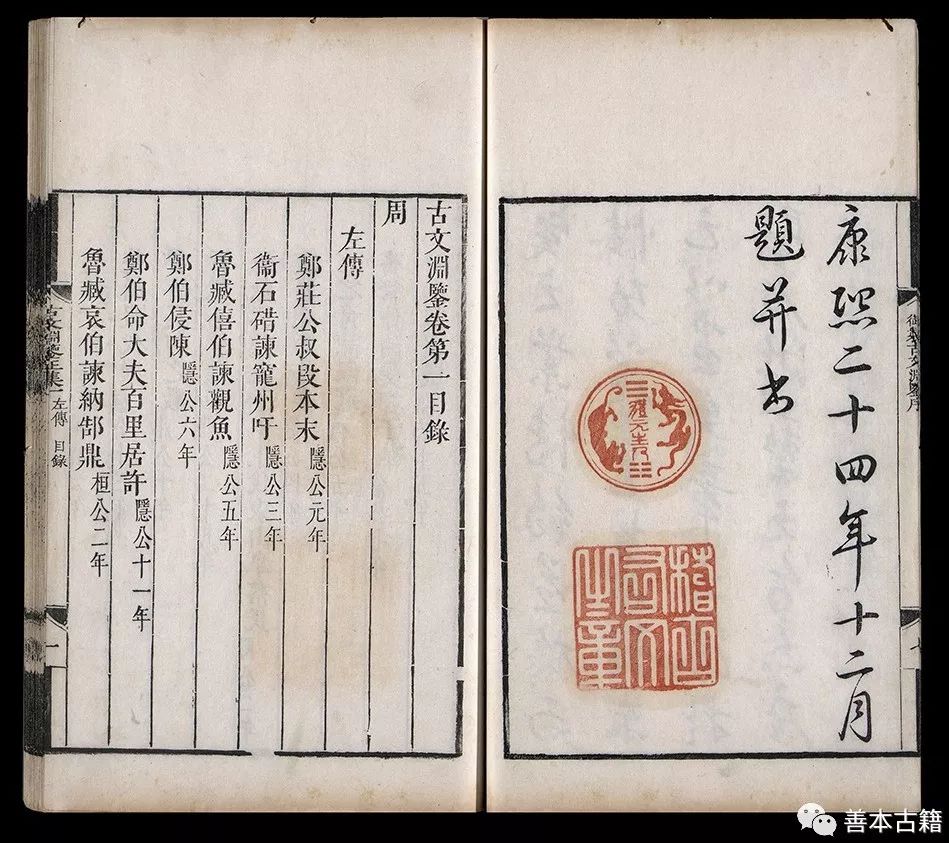 康熙二十四年十二月
題并書
體元主人
稽古右文之章
御製古文淵鑒序
古文淵鑒卷第一目錄
周
左傳
鄭莊公叔段本末 隱公元年
衞石碏諫寵州吁 隱公三年
魯臧僖伯諫觀魚 隱公五年
鄭伯侵陳 隱公六年
鄭伯命大夫百里居許 隱公十一年
魯臧哀伯諫納郜鼎 桓公二年
古文淵鑒正集 一 左傳 目錄
一
善本古籍